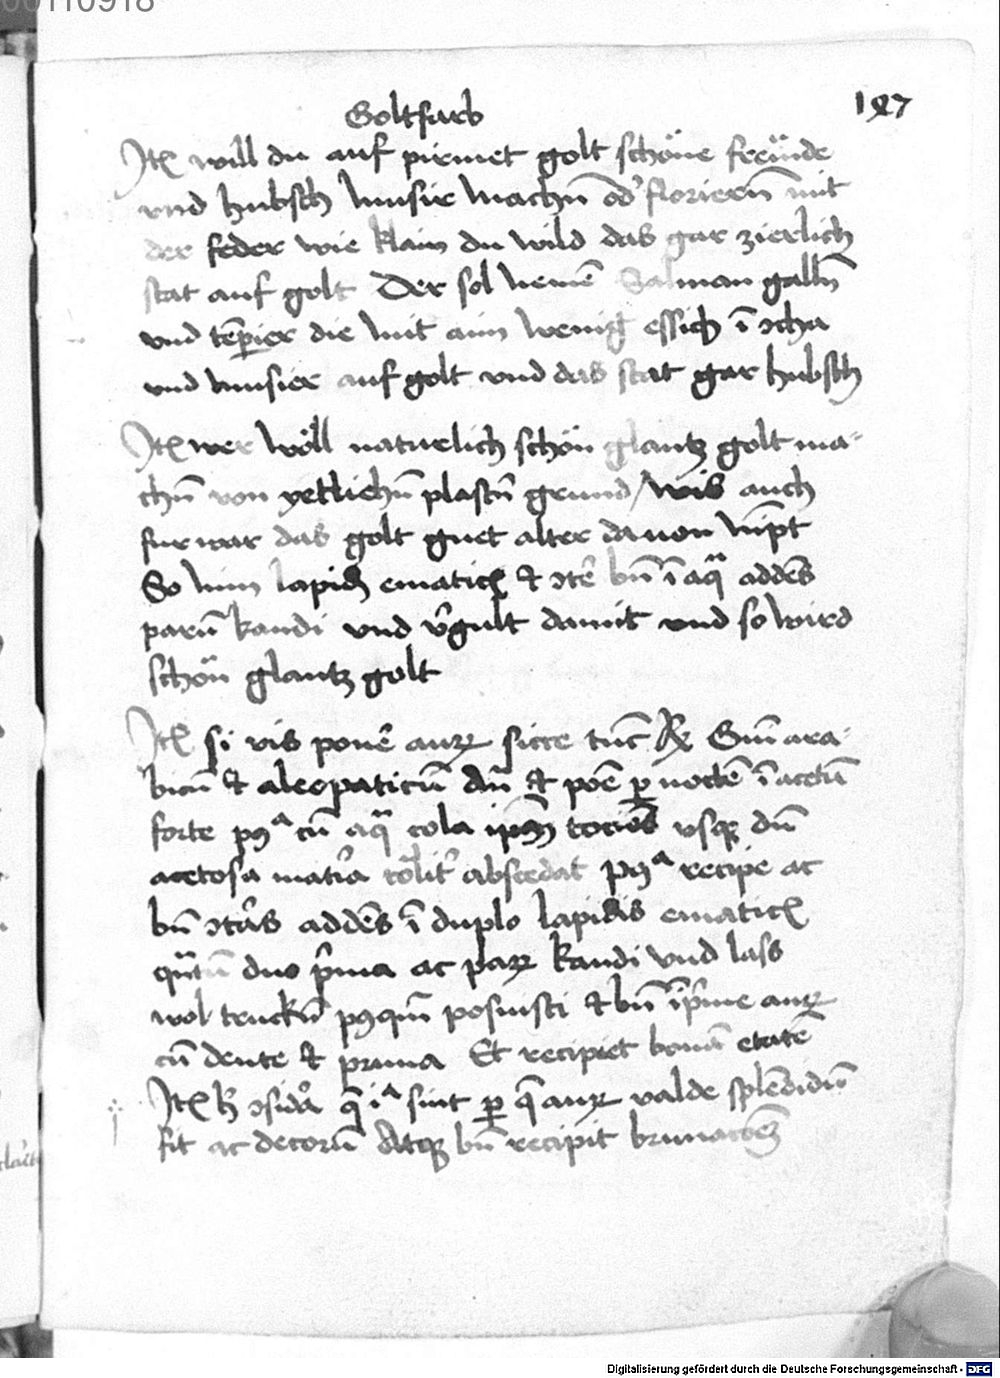 00110918
Goltfarb
197
Itē will du auf pirmet golt schöne freünde
vnd hubsch musir machn̄ od' floriern̄ mit
der feder wie klain du wild das gar zierlich
stat auf golt Der sol nemē Salman galln̄
vnd tēperier die mit aim wenig essich ī
vnd musier auf golt vnd das stat gar hubsch
Itē wer wöll naturlich schön glantz golt ma-
chn̄ von yetlichn̄ plastn̄ grund / wis auch
fur war das golt guet alter dauon nīpt
So nim lapid̄ ematic̄ et bn̄ ī aq̄ addēs
parū kandi vnd v̄gult damit vnd so wird
schön glantz golt
Itē si vis ponē aurꝝ sicce tūc ℞ Gūi ara-
bicū et aleopaticū an̄ et pōe ꝑ noctē ī acetū
forte pꝰᵃ cū aq̄ cola ipm̄ tociēs vsqꝫ dū
acetosa mat'ia abscedat pꝰᵃ recipe ac
bn̄ addēs ī duplo lapidis ematic̄
duo p'ma ac parꝝ kandi vnd lass
wol truckn̄ pꝰqm̄ posuisti et bn̄ īp'me aurꝝ
cū dente et pruna Et recipiet bonā etatē
Itē qͥ iᵃ sint ꝑ q̄ aurꝝ valde splēdidū
fit ac decorū Atqꝫ bn̄ recipit
Digitalisierung gefördert durch die Deutsche Forschungsgemeinschaft - DFG